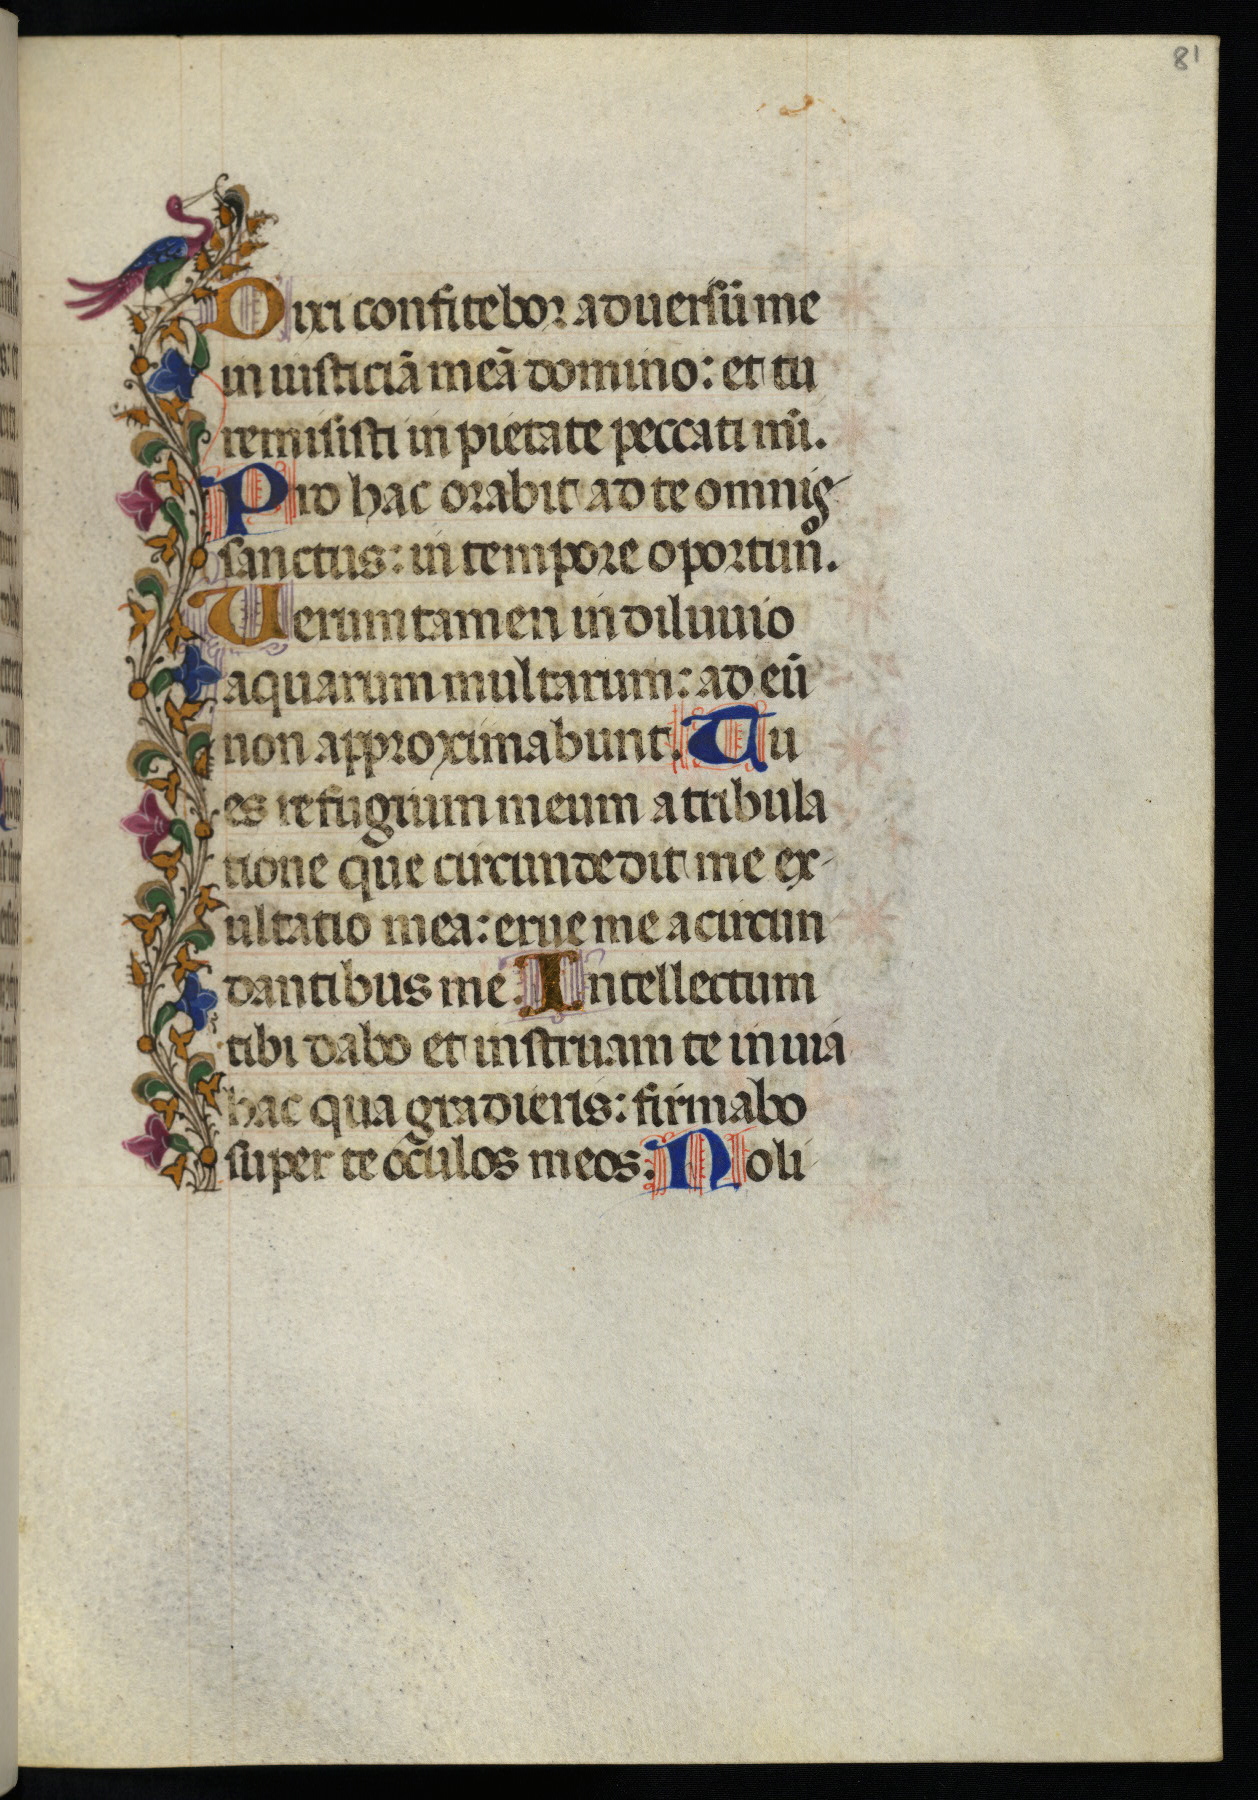 81
Dixi confitebor aduersū me
iniusticiā meā domino: et tu
remisisti in pietate peccati mī.
Pro hac orabit ad te omnis
sanctus: in tempore oportunͦ.
Uerumtamen in diluuio
aquarum multarum: ad eū
non approximabunt. Tu
es refugium meum a tribula
tione que circundedit me ex-
ultatio mea: erue me a circun
dantibus me. Intellectum
tibi dabo et instruam te in uia
hac qua gradieris: firmabo
super te oculos meos. Noli